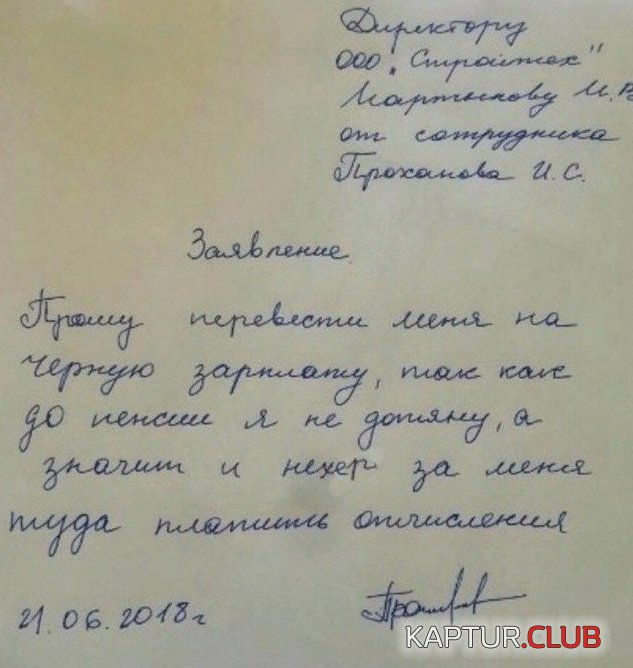 Директору
ООО „Строймах"
Мартынову И.В
от сотрудника
Проханова И.С.
Заявление.
Прошу перевести меня на
черную зарплату, так как
до пенсии я не дотяну, а
значит и нехер за меня
туда платить отчисления
21.06.2018г
KAPTUR.CLUB